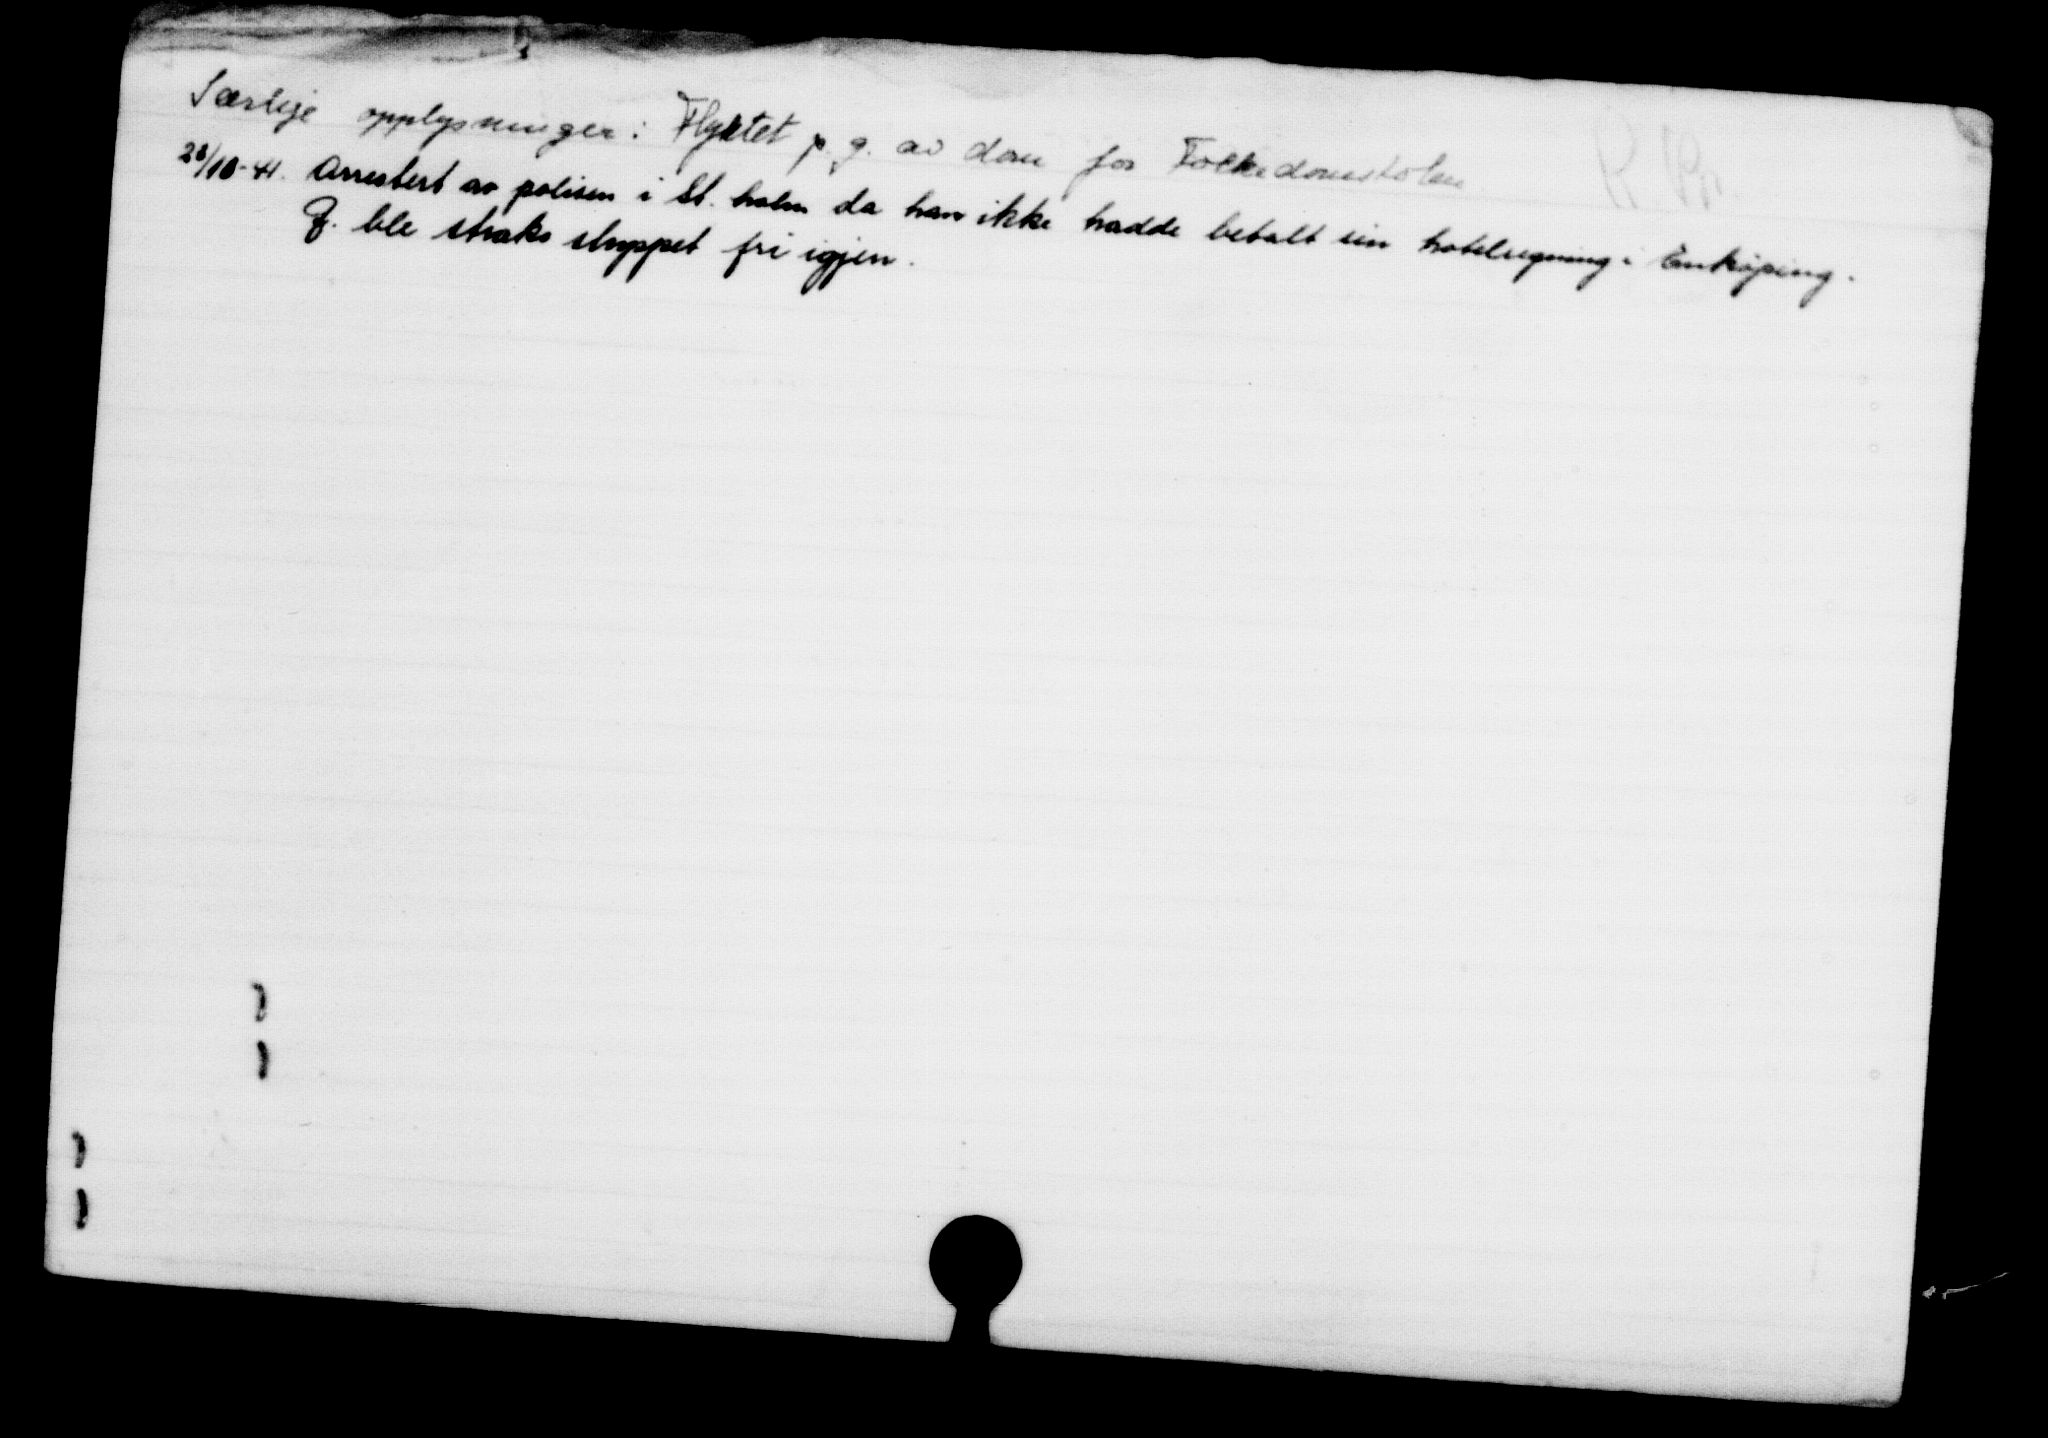 Særlige opplysninger: Flyktet p. g. av dom for Folkedomstolen
28/10-41. Arrestert av polisen i St. holm da han ikke hadde betalt sin hotelregning i Enköping.
F. ble straks sluppet fri igjen.